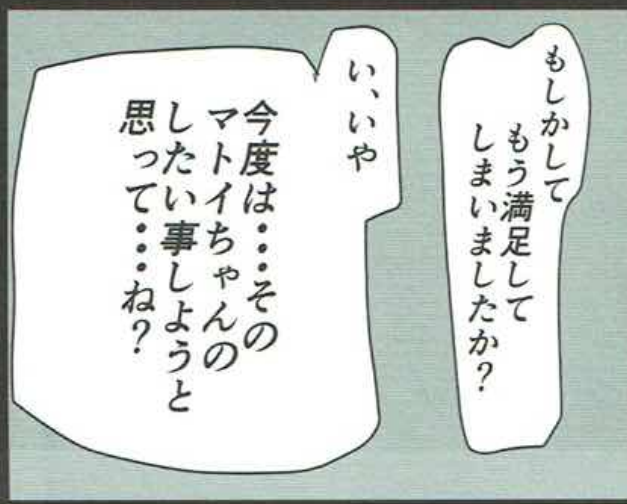 もしかして
もう満足して
しまいましたか？
い、いや
今度は・・・その
マトイちゃんの
したい事しようと
思って・・・ね？